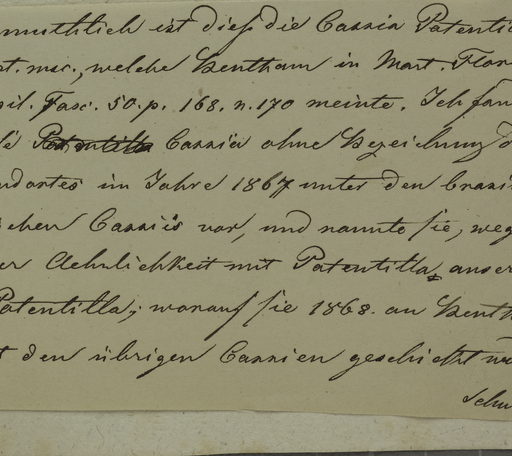 muthlich ist dieß die Cassia Patentil
pt. msc., welche Bentham in Mart. Flor
sil. Fasc. 50. p. 168. n. 170 meinte. Ich fan
Patentilla Cassia ohne Bezeichnung d
ndortes im Jahre 1867 unter den brasi
schen Cassiis vor, und nannte sie, weg
er Aehnlichkeit mit Patentilla anser
Patentilla; worauf sie 1868. an Benth
t den übrigen Cassien geschickt wu